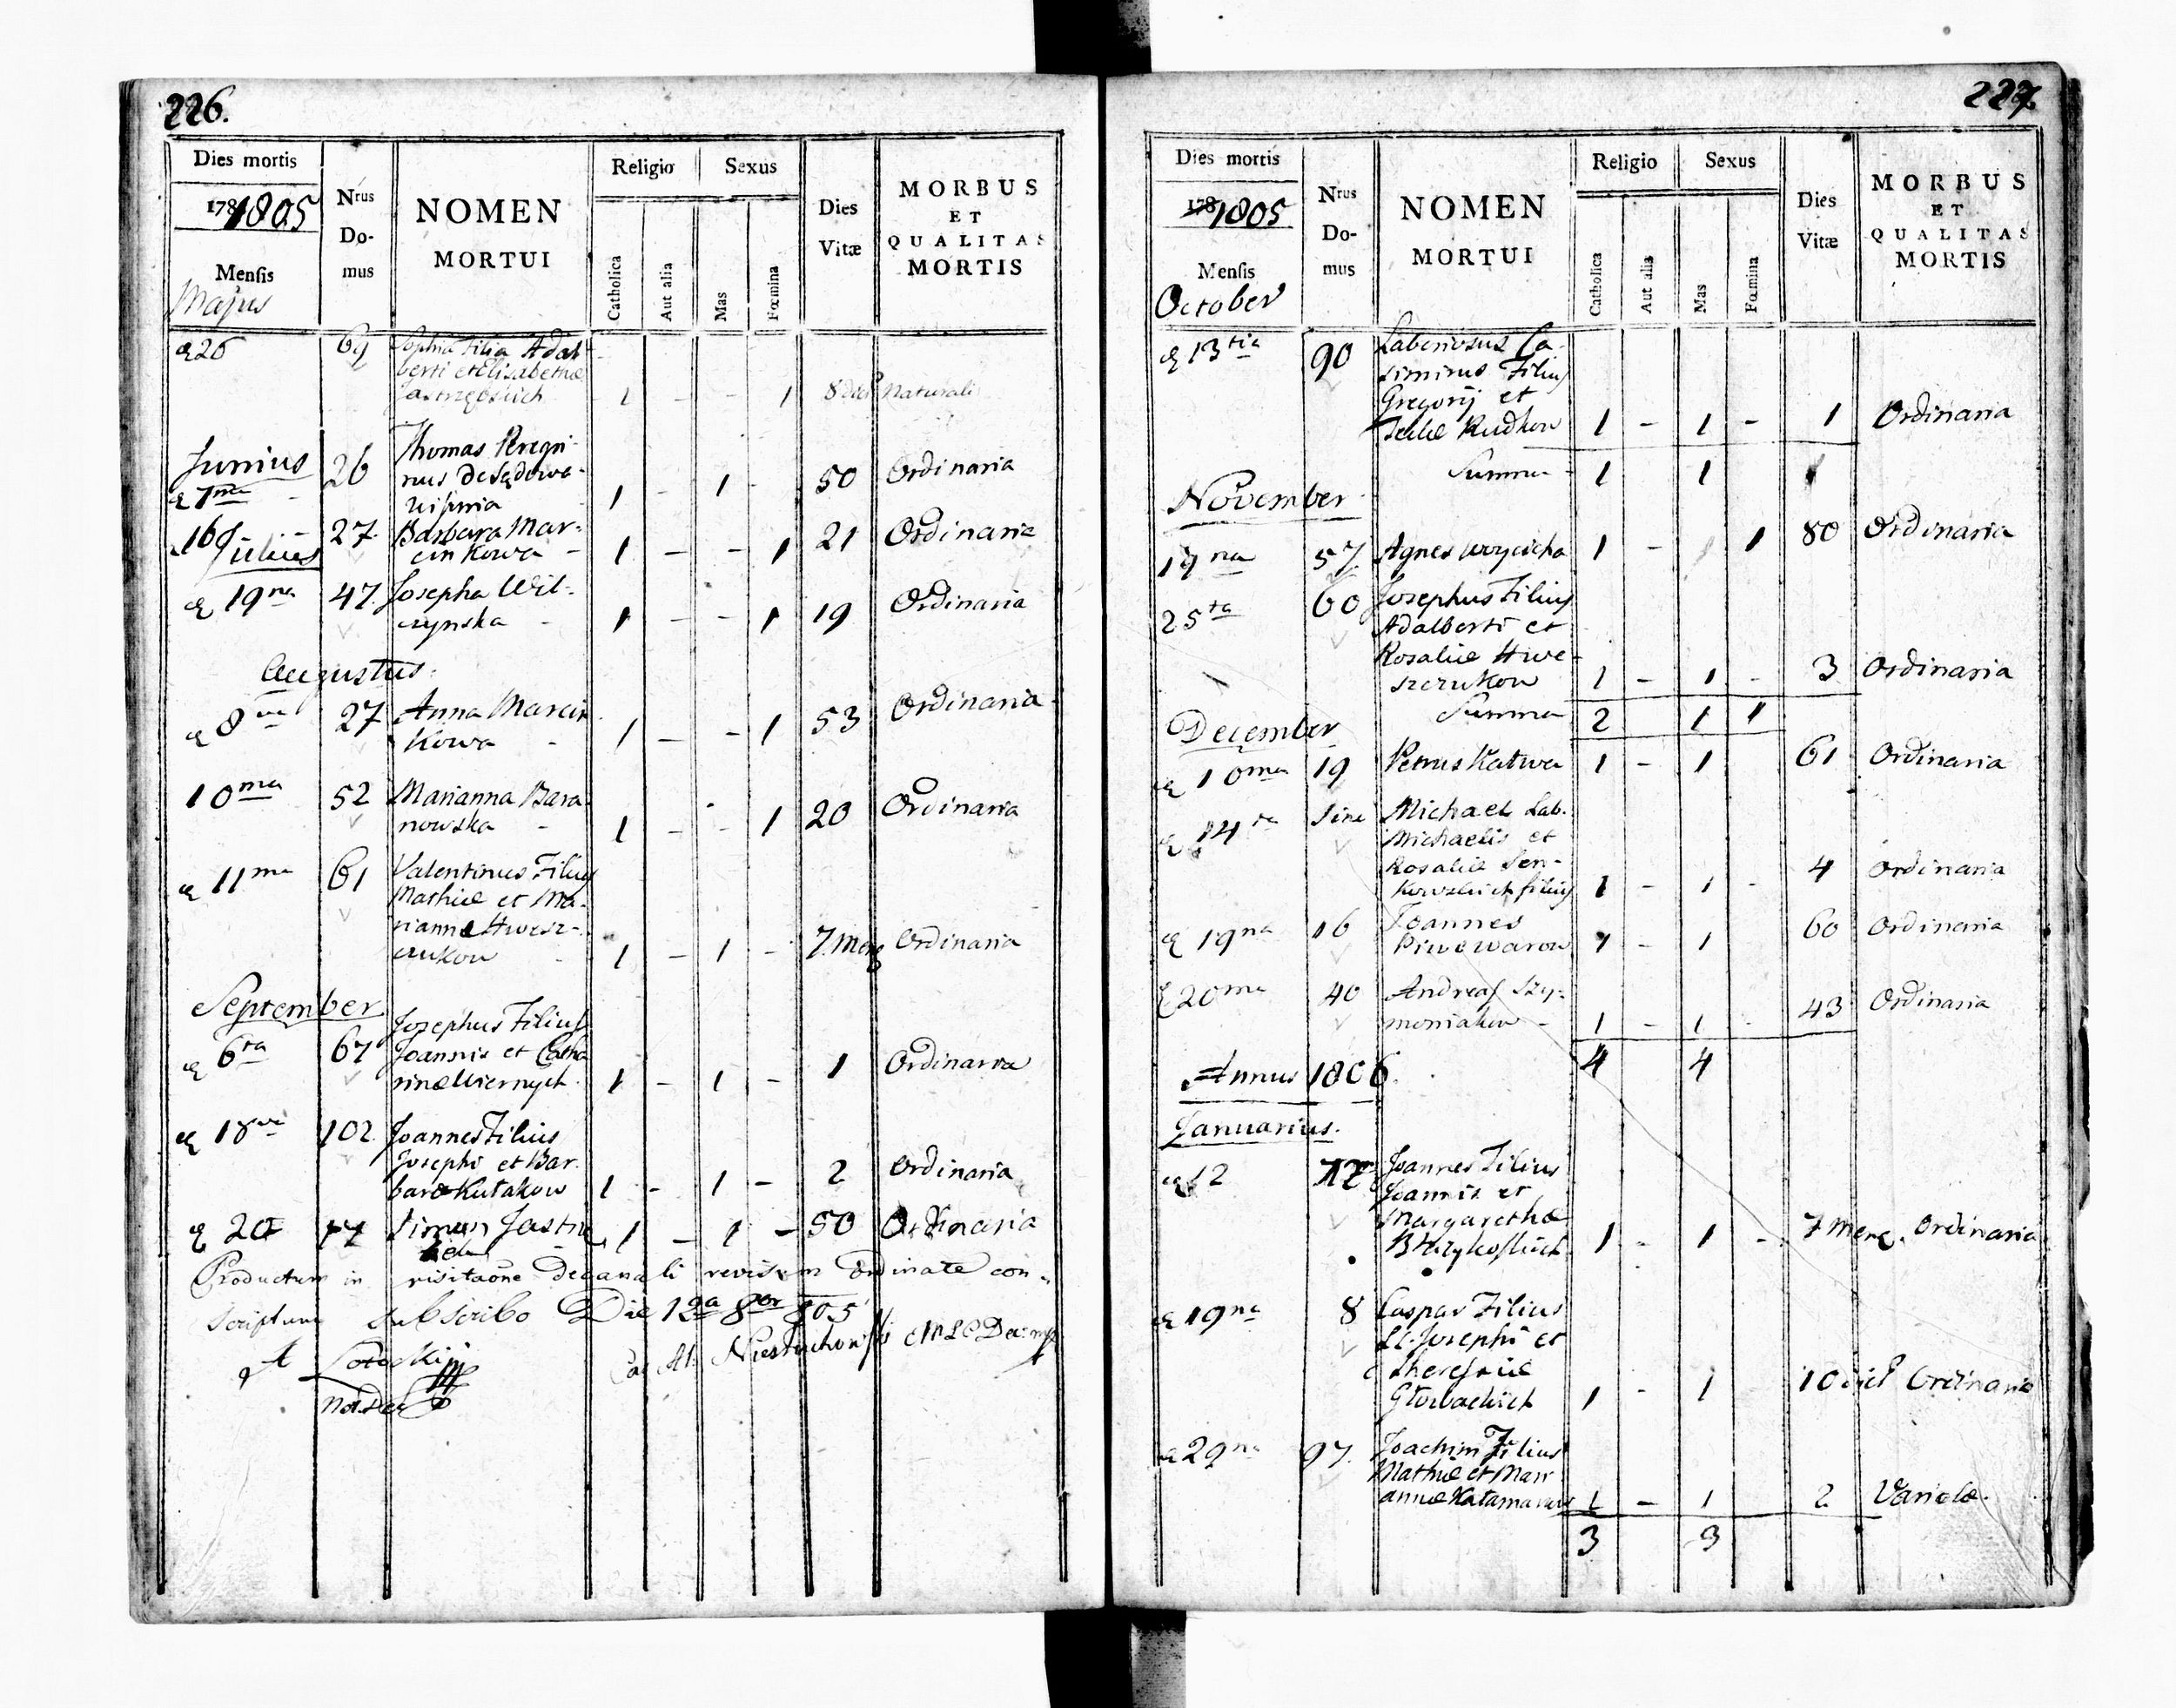 226.
Dies mortis
1805
Mensis
Majus
Nrus
Do-
mus
NOMEN
MORTUI
Religio
Sexus
Catholica
Aut alia
Mas
Fœmina
Dies
Vitæ
MORBUS
ET
QUALITAS
MORTIS
26 69 Sophia Filia Adal-
berti et Elisabethæ
1 - - 1 8 dies Naturali
Junius 26 Thomas Peregri-
nus de Sądowa
7ma 1 - 1 - 50 Ordinaria
16 27. Barbara Mar-
cinkowa - 1 - - 1 21 Ordinaria
Julius
19na 47. Josepha Wil-
czynska - 1 - - 1 19 Ordinaria
Augustus.
8va 27 Anna Marcin
kowa - 1 - - 1 53 Ordinaria
10ma 52 Marianna Bara
nowska - 1 - - 1 20 Ordinaria
11ma 61 Valentinus Filius
Mathiæ et Ma-
riannæ Hwesz-
czukow - 1 - 1 - 7. Mens Ordinaria
September
6ta 67 Josephus Filius
Joannis et Catha
rinæ Wiernych 1 - 1 - 1 Ordinaria
18va 102. Joannes Filius
Josephi et Bar
baræ Kutakow 1 - 1 - 2 Ordinaria
20 Simeon 1 - 1 - 50 Ordinaria
Productum in visitaõne Decanali revisum Ordinate con-
scriptum subscribo Die 12a 8br 805
227.
Dies mortis
178 1805
Mensis
October
Nrus
Do-
mus
NOMEN
MORTUI
Religio
Sexus
Catholica
Aut alia
Mas
Fœmina
Dies
Vitæ
MORBUS
ET
QUALITAS
MORTIS
13tia 90 Laboriosus Ca-
simirus Filius
Gregorij et
Rudkow 1 - 1 - 1 Ordinaria
Summa 1 1
November
57 Agnes 1 - 1 80 Ordinaria
25ta 60 Josephus Filius
Adalberti et
Rosaliæ Hwe-
szczukow 1 - 1 - 3 Ordinaria
Summa 2 1 1
December
10ma 19 Petrus Katwa 1 - 1 61 Ordinaria
14ta Sine Michael Lab.
Michaelis et
Rosaliæ Sen-
kowskich filius 1 - 1 - 4 Ordinaria
19na 16 Joannes
Piwowarow 1 - 1 60 Ordinaria
20ma 40 Andreas Szy-
moniakow - 1 - 1 - 43 Ordinaria
4 4
Annus 1806.
Januarius.
12 Joannes Filius
Joannis et
Margarethæ
1 - 1 - 7 Mens. Ordinaria
19na 8 Caspar Filius
Josephi et
Theresiæ
1 - 1 10 dies Ordinaria
29na 97. Joachim Filius
Mathiæ et Mari
annæ 1 - 1 2 Variolæ.
3 3